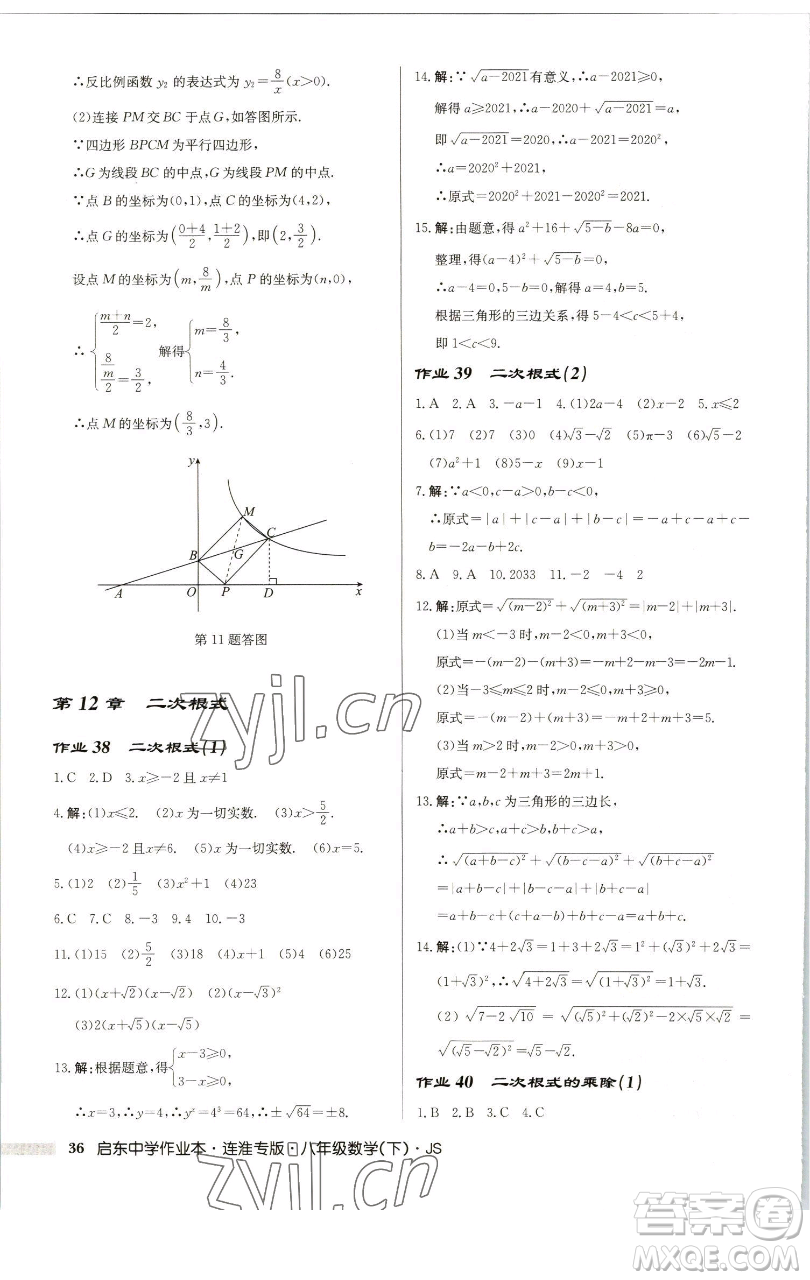 ∴反比例函数 y₂ 的表达式为 y₂=8/x(x>0).
(2)连接 PM 交 BC 于点 G,如答图所示.
∵四边形 BPCM 为平行四边形,
∴G 为线段 BC 的中点,G 为线段 PM 的中点.
∵点 B 的坐标为(0,1),点 C 的坐标为(4,2),
∴点 G 的坐标为((0+4)/2,(1+2)/2),即(2,3/2).
设点 M 的坐标为(m,8/m),点 P 的坐标为(n,0),
∴{(m+n)/2=2, (8/m)/2=3/2, 解得{m=8/3, n=4/3.
∴点 M 的坐标为(8/3,3).
y
M
C
B
G
A
O
P
D
x
第 11 题答图
第 12 章 二次根式
作业 38 二次根式(1)
1.C 2.D 3.x≥-2 且 x≠1
4.解:(1)x≤2. (2)x 为一切实数. (3)x>5/2.
(4)x≥-2 且 x≠6. (5)x 为一切实数. (6)x=5.
5.(1)2 (2)1/5 (3)a²+1 (4)23
6.C 7.C 8.-3 9.4 10.-3
11.(1)15 (2)5/2 (3)18 (4)x+1 (5)4 (6)25
12.(1)(x+√2)(x-√2) (2)(x-√3)²
(3)2(x+√5)(x-√5)
13.解:根据题意,得{x-3≥0, 3-x≥0,
∴x=3,y=4,∴xʸ=4³=64,∴±√64=±8.
14.解:∵√(a-2021)有意义,∴a-2021≥0,
解得 a≥2021,∴a-2020+√(a-2021)=a,
即√(a-2021)=2020,∴a-2021=2020²,
∴a=2020²+2021,
∴原式=2020²+2021-2020²=2021.
15.解:由题意,得 a²+16+√(5-b)-8a=0,
整理,得(a-4)²+√(5-b)=0,
∴a-4=0,5-b=0,解得 a=4,b=5.
根据三角形的三边关系,得 5-4<c<5+4,
即 1<c<9.
作业 39 二次根式(2)
1.A 2.A 3.-a-1 4.(1)2a-4 (2)x-2 5.x≤2
6.(1)7 (2)7 (3)0 (4)√3-√2 (5)π-3 (6)√5-2
(7)a²+1 (8)5-x (9)x-1
7.解:∵a<0,c-a>0,b-c<0,
∴原式=|a|+|c-a|+|b-c|=-a+c-a+c-b=-2a-b+2c.
8.A 9.A 10.2033 11.-2 -4 2
12.解:原式=√(m-2)²+√(m+3)²=|m-2|+|m+3|.
(1)当 m<-3 时,m-2<0,m+3<0,
原式=-(m-2)-(m+3)=-2m-1.
(2)当-3≤m≤2 时,m-2≤0,m+3≥0,
原式=-(m-2)+(m+3)=5.
(3)当 m>2 时,m-2>0,m+3>0,
原式=m-2+m+3=2m+1.
13.解:∵a,b,c 为三角形的三边长,
∴a+b>c,a+c>b,b+c>a,
∴√(a+b-c)²+√(b-c-a)²+√(b+c-a)²
=|a+b-c|+|b-c-a|+|b+c-a|
=a+b-c+a+c-b+b+c-a=a+b+c.
14.解:(1)∵4+2√3=1+3+2√3=1²+√3²+2√3=
(1+√3)²,∴√(4+2√3)=√(1+√3)²=1+√3.
(2)√(7-2√10)=√((√5)²+(√2)²-2×√5×√2)
=√(√5-√2)²=√5-√2.
作业 40 二次根式的乘除(1)
1.B 2.B 3.C 4.C
36 启东中学作业本·连淮专版·八年级数学(下)·JS
zyjl.cn
zyjl.cn
答案圈
MXQE.COM